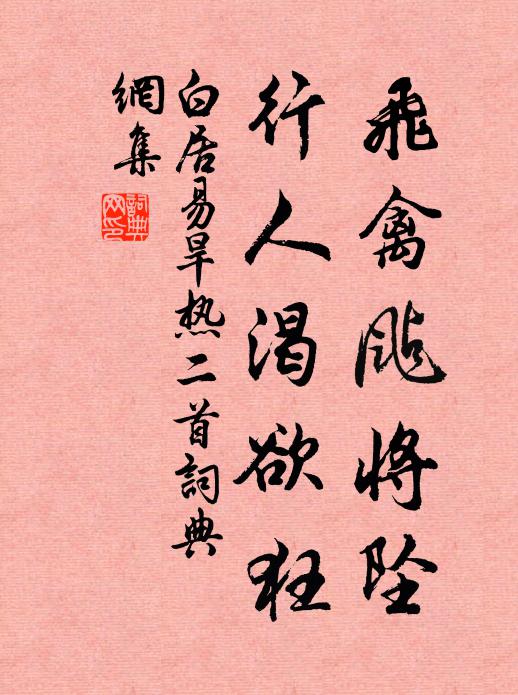 飛禽颭將坠
行人渴欲狂
白居易旱热二首詞典
網集
詞典
网印